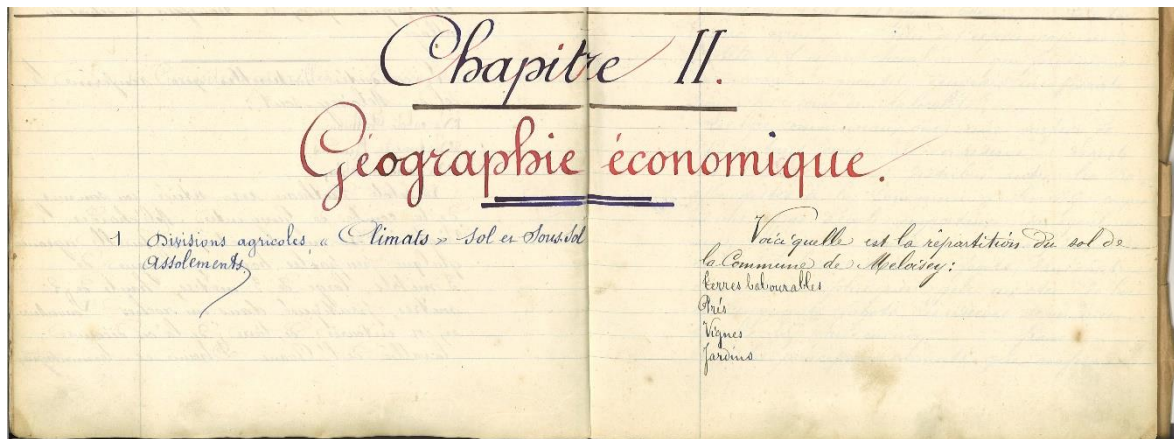 Chapitre II.
Géographie économique.
1 Divisions agricoles « Climats » Sol et Sous-Sol
Assolements
Voici quelle est la répartition du sol de
la Commune de Meloisey :
terres labourables
Prés
Vignes
Jardins